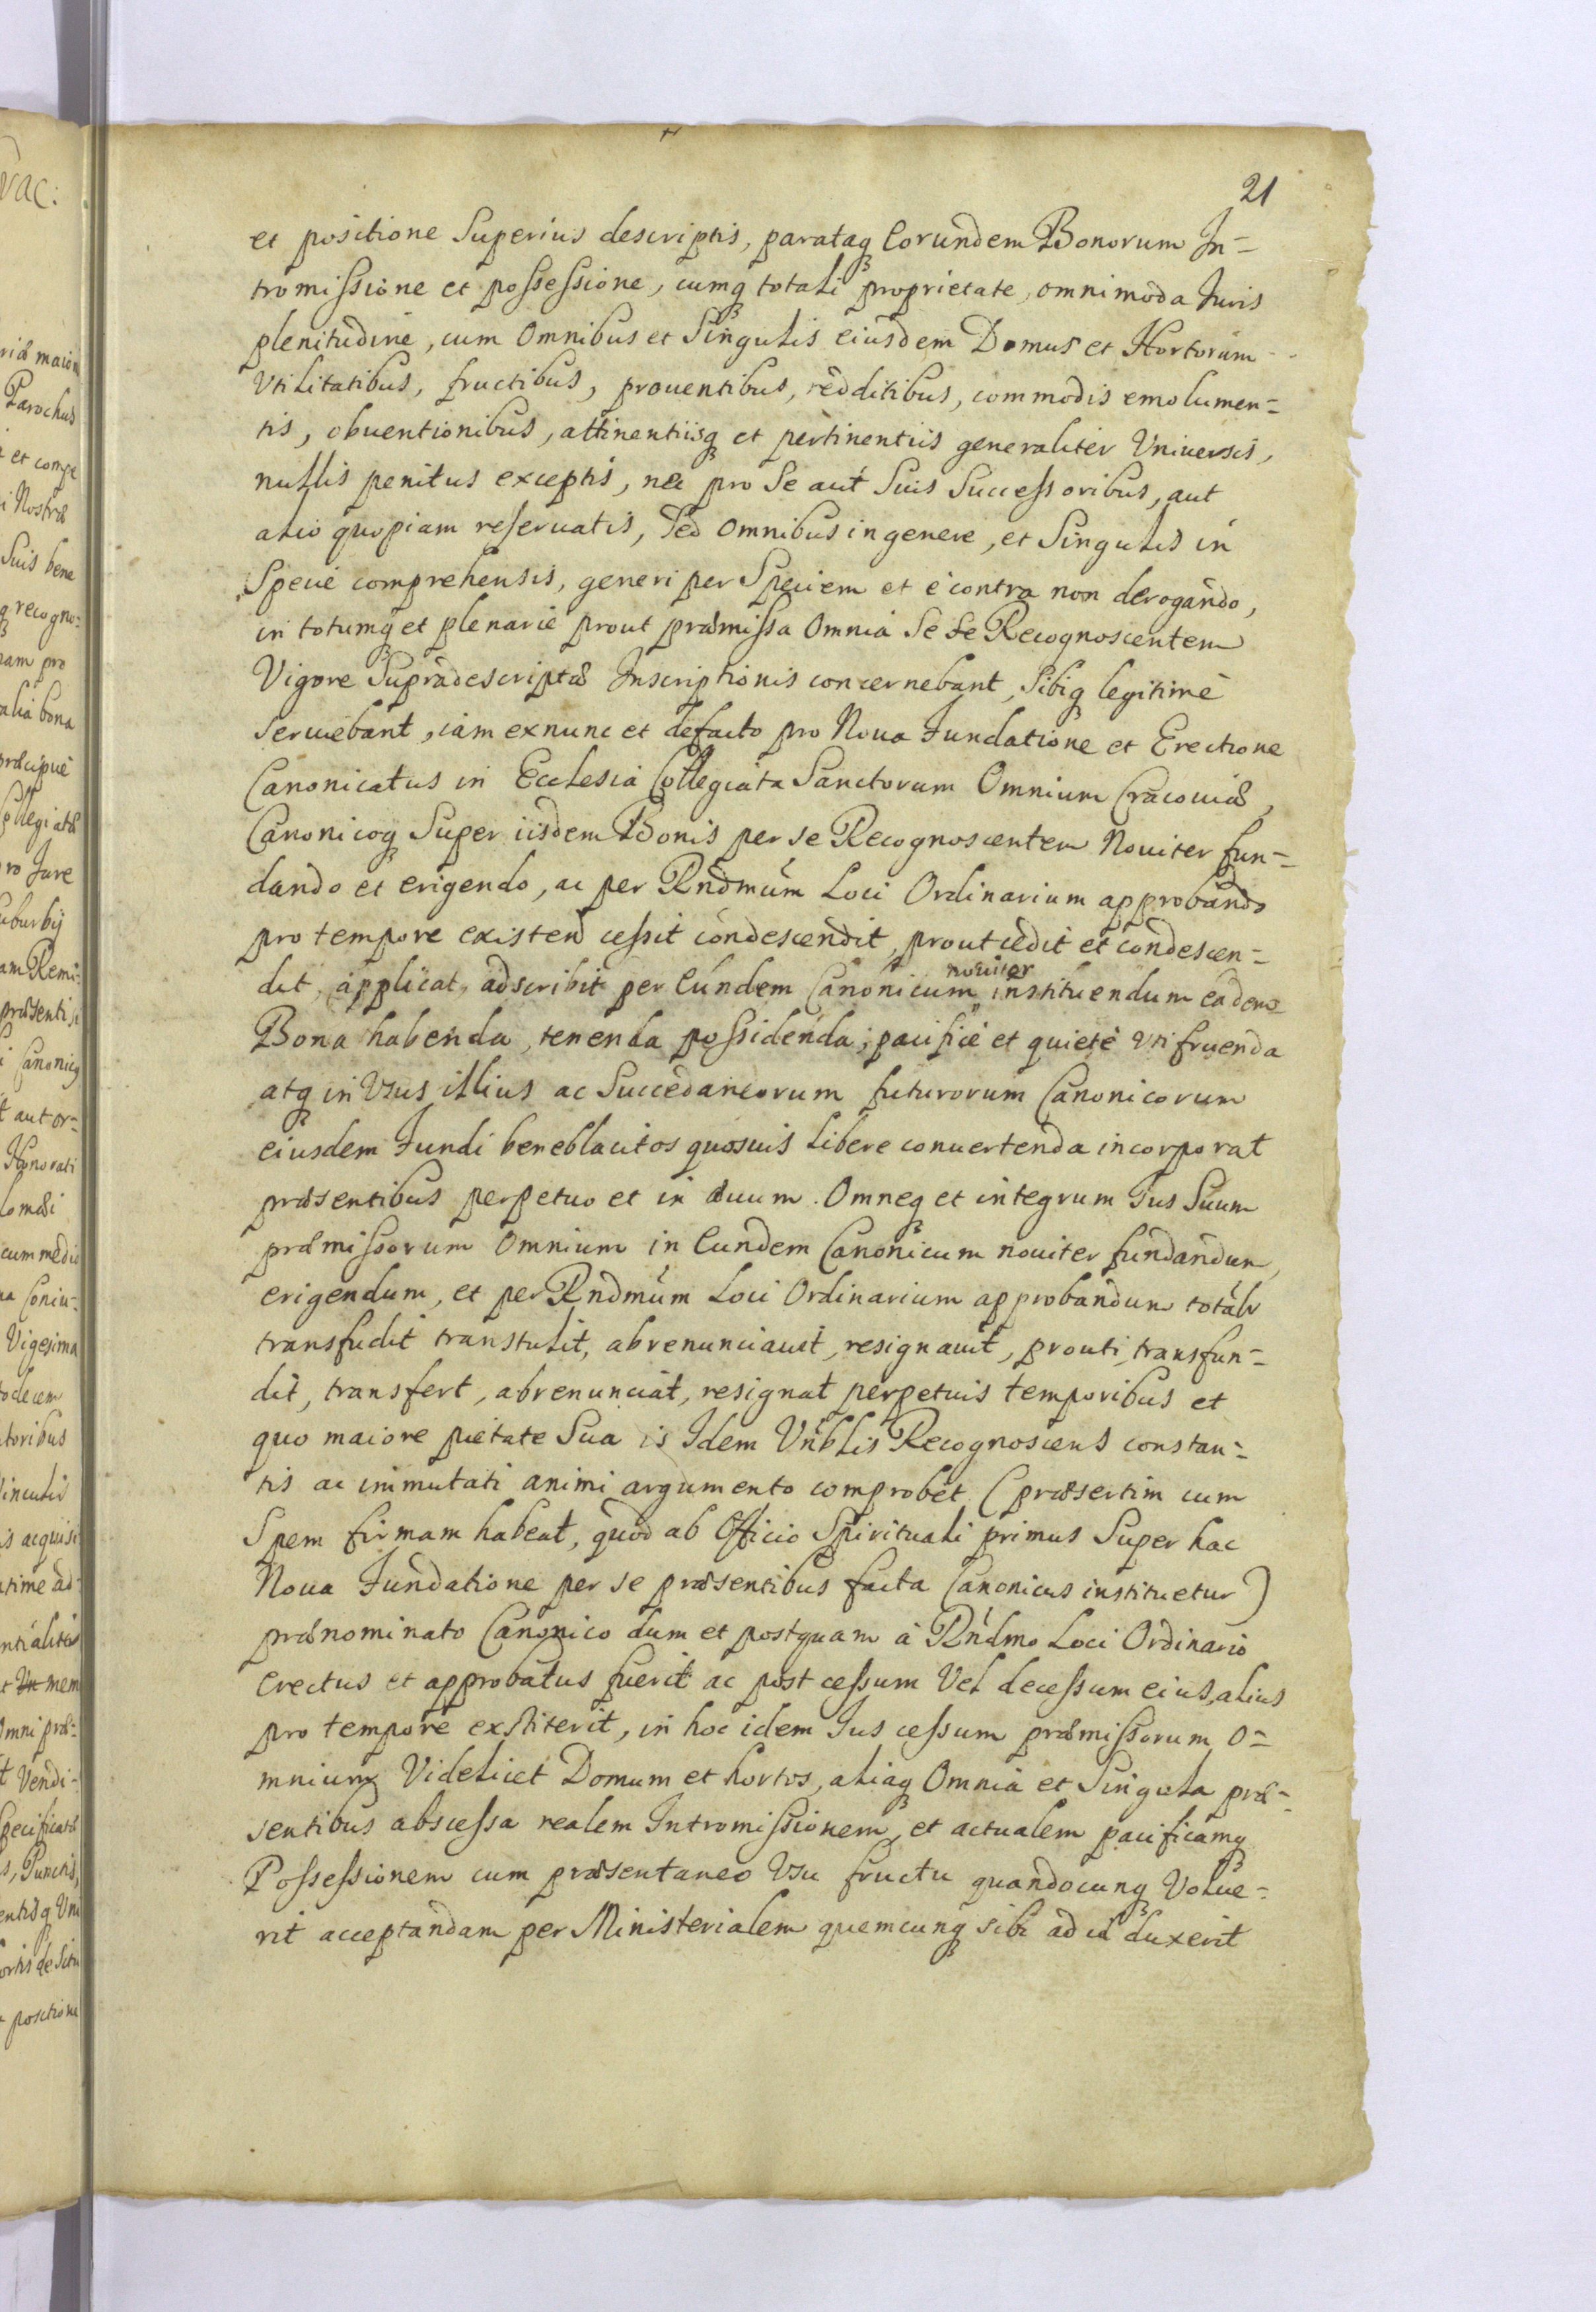 21
et positione Superius descriptis, parataq Eorundem Bonorum In=
tromissione et possessione, cumq totali proprietate, omnimoda Iuris
plenitudine, cum Omnibus et Singulis eiusdem Domus et Hortorum
Vtilitatibus, fructibus, prouentibus, redditibus, commodis emolumen=
tis, obuentionibus, attinentiisq et pertinentiis generaliter Vniversis,
nullis penitus exceptis, nec pro Se aut Suis Successoribus, aut
alio quopiam reseruatis, Sed Omnibus in genere, et Singulis in
Specie comprehensis, generi per Speciem et è contra non derogando,
in totumq et plenarie prout præmissa Omnia Se se Recognoscentem
Vigore Supradescriptæ Inscriptionis concernebant, Sibiq legitime
seruiebant, iam exnunc et defacto pro Noua Fundatione et Erectione
Canonicatus in Ecclesia Collegiata Sanctorum Omnium Cracouiæ,
Canonicoq Super iisdem Bonis per se Recognoscentem Nouiter fun=
dando et erigendo, ac per Rndmum Loci Ordinarium approbando
pro tempore existen cessit condescendit, prout cedit et condescen=
dit, applicat, adscribit per Eundem Canonicum nouiter instituendum eadem
Bona habenda, tenenda possidenda, pacifice et quiete vti fruenda
atq in Vsus illius ac Succedaneorum futurorum Canonicorum
eiusdem Fundi beneblacitos quosuis libere conuertenda incorporat
præsentibus perpetuo et in æuum. Omneq et integrum Ius Suum
præmissorum Omnium in Eundem Canonicum nouiter fundandum,
erigendum, et per Rndmum Loci Ordinarium approbandum totalr
transfudit transtulit, abrenunciauit, resignauit, prouti transfun=
dit, transfert, abrenunciat, resignat perpetuis temporibus et
quo maiore pietate Sua is Idem Vnblis Recognoscens constan=
tis ac inimutati animi argumento comprobet (præsertim cum
Spem firmam habeat, quod ab Officio Spirituali primus Super hac
Noua Fundatione per se præsentibus facta Canonicus instituetur)
prænominato Canonico dum et postquam à Rndmo Loci Ordinario
erectus et approbatus fuerit ac post cessum Vel decessum eius, alius
pro tempore exstiterit, in hoc idem Ius cessum præmissorum O=
mnium Videlicet Domum et hortos, aliaq Omnia et Singula præ=
sentibus abscessa realem Intromissionem, et actualem pacificamq
Possessionem cum præsentaneo Vsu fructu quandocunq Volue=
rit acceptandam per Ministerialem quemcunq sibi ad id duxerit